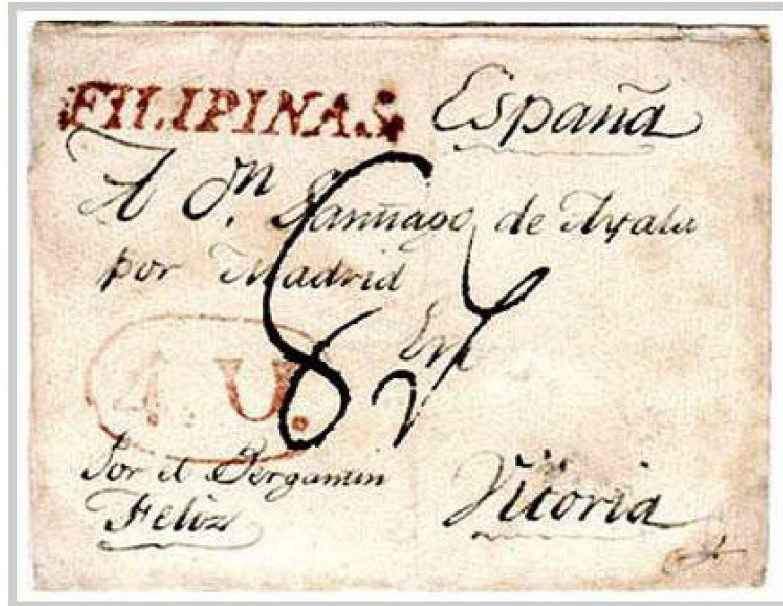 FILIPINAS España
A Dn Santiago de Ayala
por Madrid
En
4 U.
Por el Bergantin
Feliz Vitoria